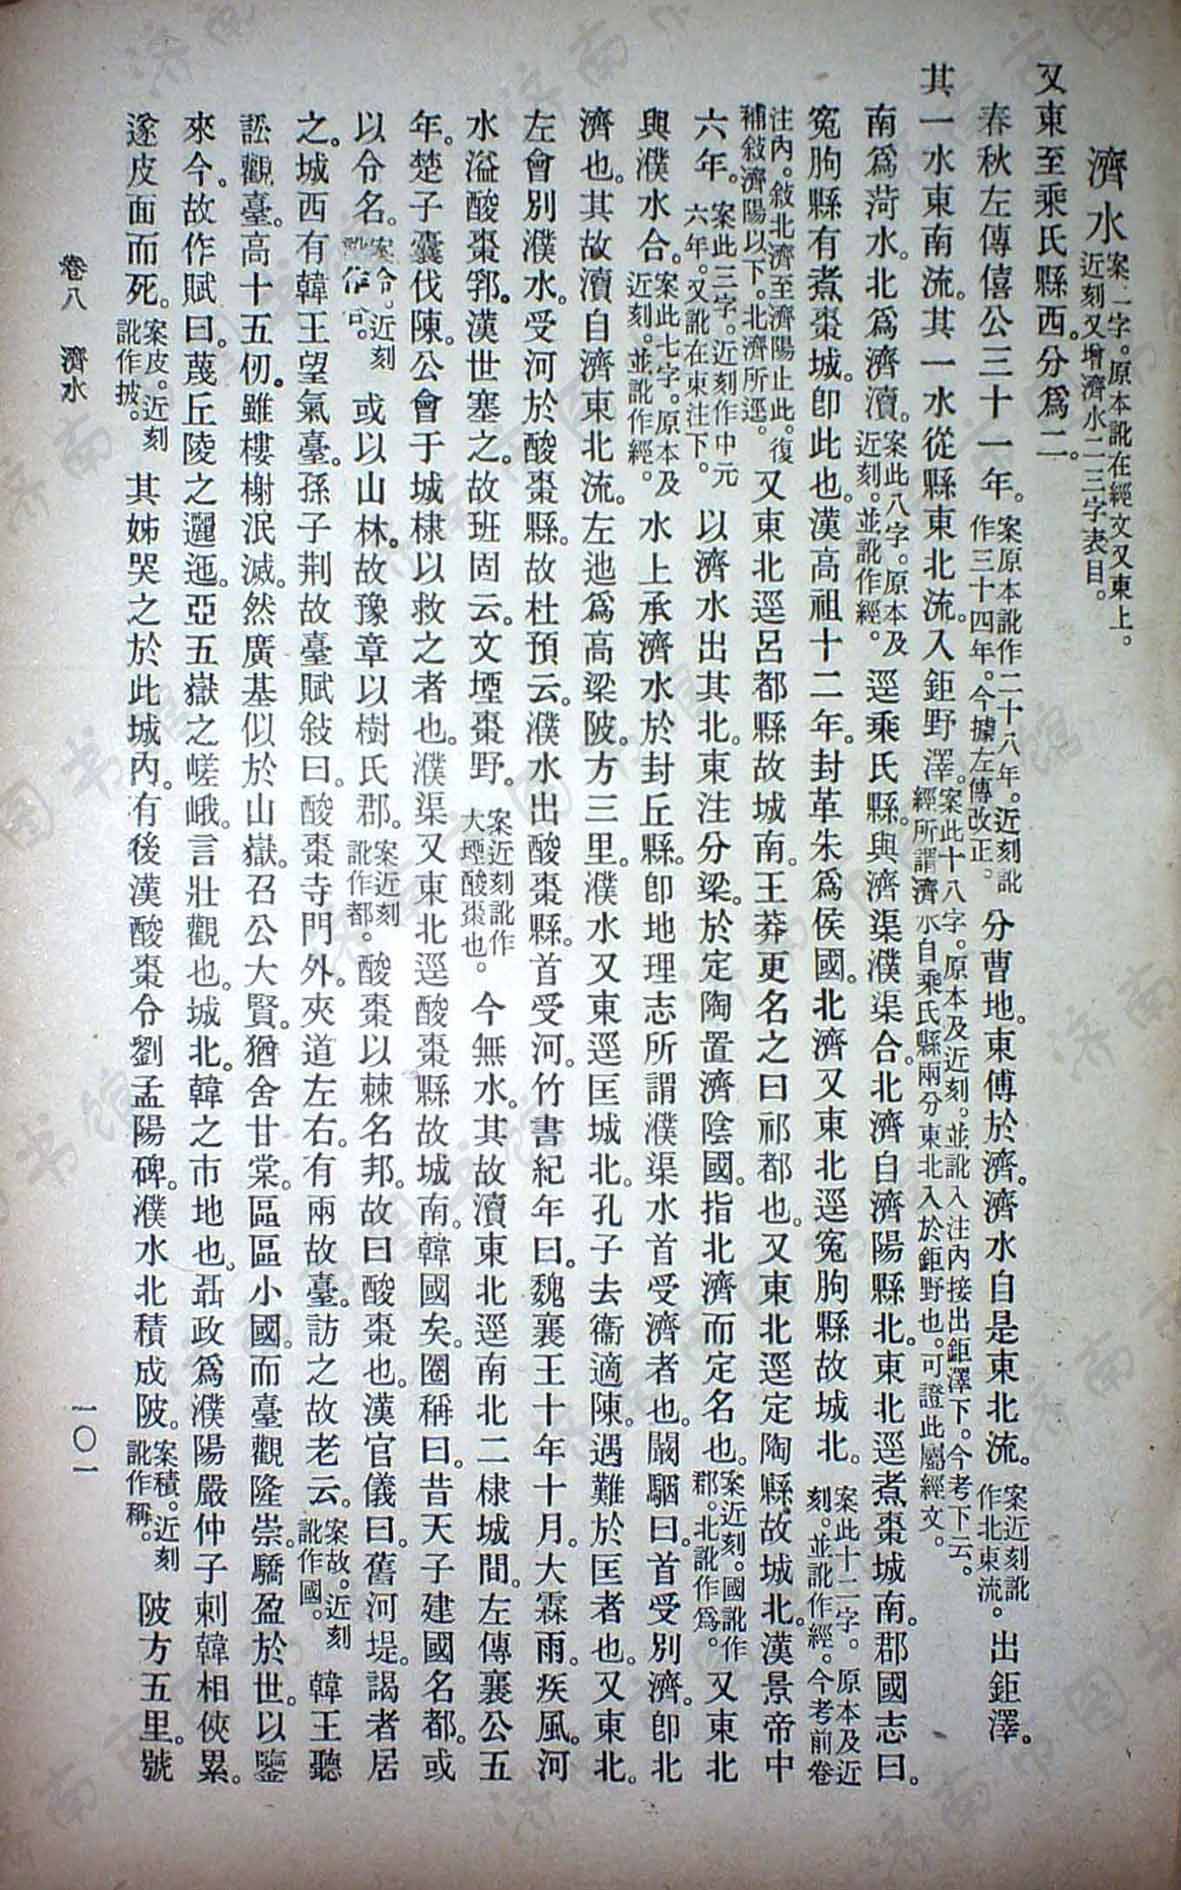 濟水案二字。原本訛在經文又東上。近刻又增濟水二三字表目。
又東至乘氏縣西。分爲二。
春秋左傳僖公三十一年。案原本訛作二十八年。近刻訛作三十四年。今據左傳改正。分曹地。東傅於濟。濟水自是東北流。案近刻訛作北東流。出鉅澤。
其一水東南流。其一水從縣東北流。入鉅野澤。案此十八字。原本及近刻。並訛入注內。接出鉅澤下。今考下云。經所謂濟水自乘氏縣兩分東北入於鉅野也。可證此屬經文。
南爲菏水。北爲濟瀆。案此八字。原本及近刻。並訛作經。逕乘氏縣。與濟渠濮渠合。北濟自濟陽縣北。東北逕煮棗城南。郡國志曰。
冤朐縣有煮棗城。卽此也。漢高祖十二年。封革朱爲侯國。北濟又東北逕冤朐縣故城北。案此十二字。原本及近刻。並訛作經。今考前卷
注內。敍北濟至濟陽止此。復補敍濟陽以下。北濟所逕。又東北逕呂都縣故城南。王莽更名之曰祁都也。又東北逕定陶縣故城北。漢景帝中
六年。案此三字。近刻作中元六年。又訛在東注下。以濟水出其北。東注分梁。於定陶置濟陰國。指北濟而定名也。案近刻。國訛作郡。北訛作爲。又東北
與濮水合。案此七字。原本及近刻。並訛作經。水上承濟水於封丘縣。卽地理志所謂濮渠水首受濟者也。闞駰曰。首受別濟。卽北
濟也。其故瀆自濟東北流。左迆爲高梁陂。方三里。濮水又東逕匡城北。孔子去衞適陳。遇難於匡者也。又東北。
左會別濮水。受河於酸棗縣。故杜預云。濮水出酸棗縣。首受河。竹書紀年曰。魏襄王十年十月。大霖雨。疾風。河
水溢酸棗郛。漢世塞之。故班固云。文堙棗野。案近刻訛作大堙酸棗也。今無水。其故瀆東北逕南北二棣城間。左傳襄公五
年。楚子囊伐陳。公會于城棣以救之者也。濮渠又東北逕酸棗縣故城南。韓國矣。圈稱曰。昔天子建國名都。或
以分名。案分。近刻訛作令。或以山林。故豫章以樹氏郡。案近刻訛作都。酸棗以棘名邦。故曰酸棗也。漢官儀曰。舊河堤謁者居
之。城西有韓王望氣臺。孫子荆故臺賦敍曰。酸棗寺門外。夾道左右。有兩故臺。訪之故老云。案故。近刻訛作國。韓王聽
訟觀臺。高十五仞。雖樓榭泯滅。然廣基似於山嶽。召公大賢。猶舍甘棠。區區小國。而臺觀隆崇。驕盈於世。以鑒
來今。故作賦曰。蔑丘陵之邐迤。亞五嶽之嵯峨。言壯觀也。城北。韓之市地也。聶政爲濮陽嚴仲子刺韓相俠累。
遂皮面而死。案皮。近刻訛作披。其姊哭之於此城內。有後漢酸棗令劉孟陽碑。濮水北積成陂。案積。近刻訛作稱。陂方五里。號
卷八 濟水
一〇一